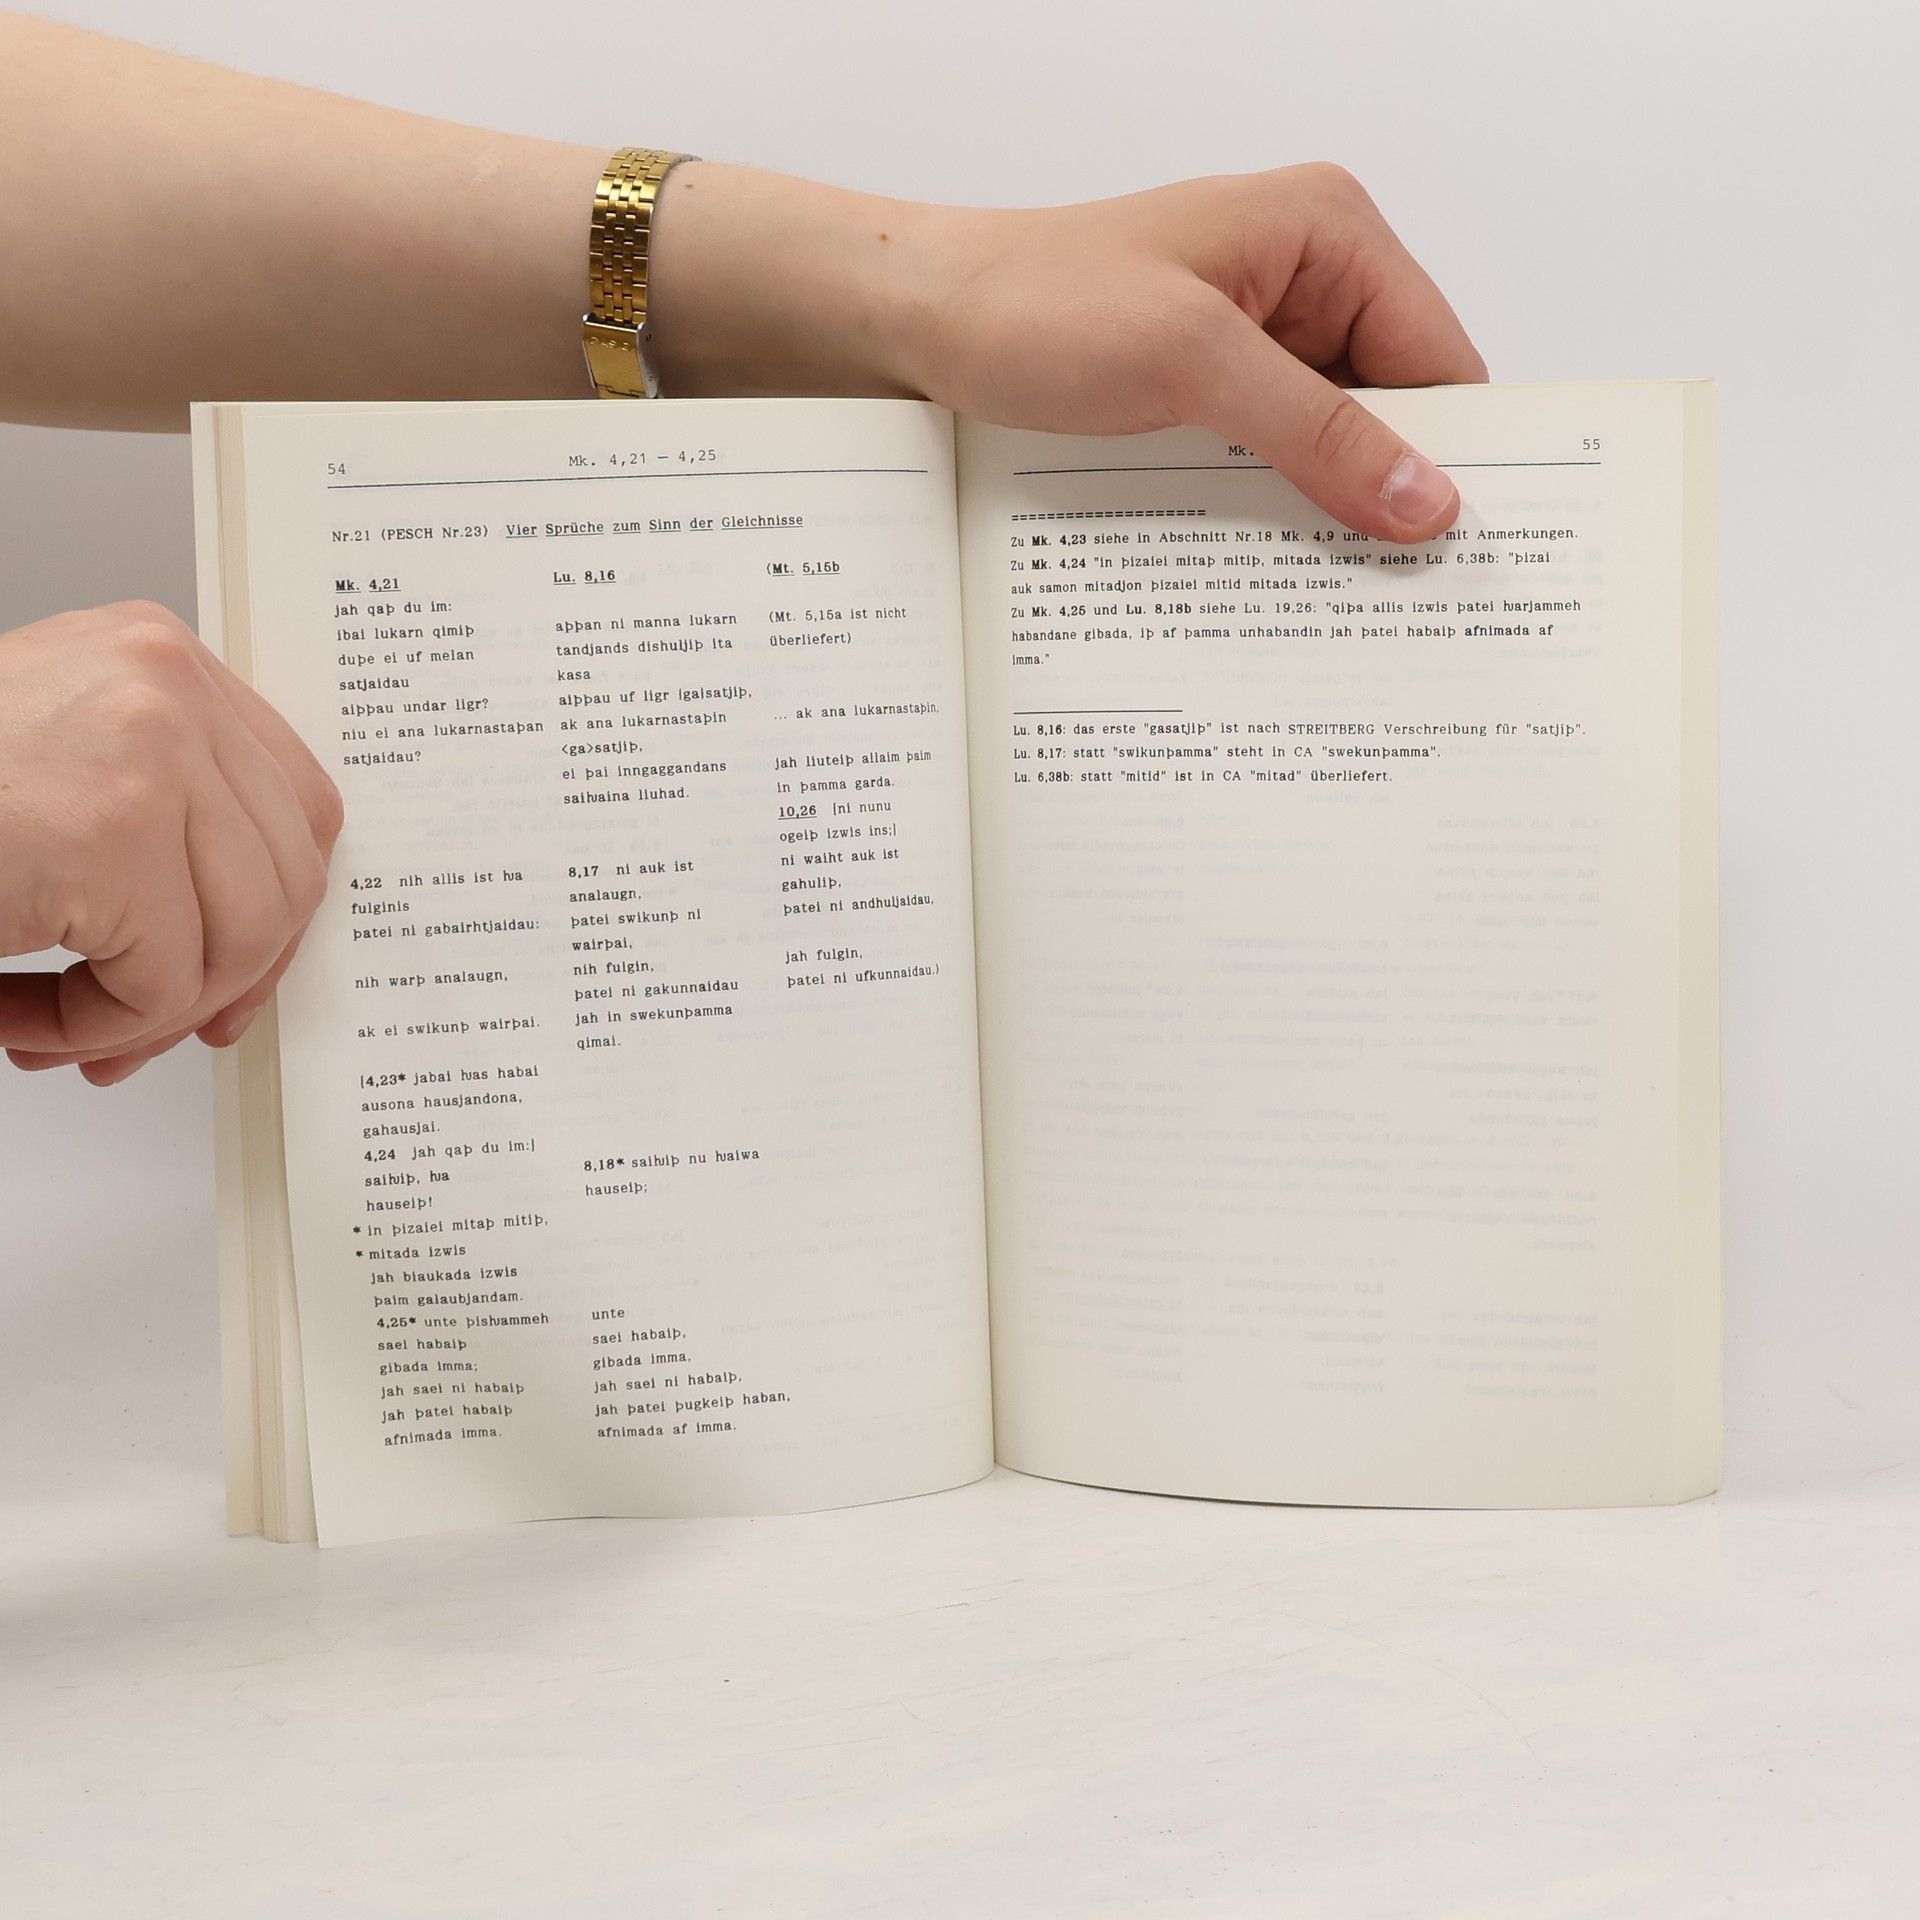 54
Mk. 4,21 — 4,25
Nr.21 (PESCH Nr.23) Vier Sprüche zum Sinn der Gleichnisse
Mk. 4,21
jah qaþ du im:
ibai lukarn qimiþ
duþe ei uf melan
satjaidau
aiþþau undar ligr?
niu ei ana lukarnastaþan
satjaidau?
4,22 nih allis ist ƕa
fulginis
þatei ni gabairhtjaidau:
nih warþ analaugn,
ak ei swikunþ wairþai.
[4,23* jabai ƕas habai
ausona hausjandona,
gahausjai.
4,24 jah qaþ du im:]
saiƕiþ, ƕa
hauseiþ!
* in þizaiei mitaþ mitiþ,
* mitada izwis
jah biaukada izwis
þaim galaubjandam.
4,25* unte þisƕammeh
saei habaiþ
gibada imma;
jah saei ni habaiþ
jah þatei habaiþ
afnimada imma.
Lu. 8,16
aþþan ni manna lukarn
tandjands dishuljiþ ita
kasa
aiþþau uf ligr [ga]satjiþ,
ak ana lukarnastaþin
<ga>satjiþ,
ei þai inngaggandans
saiƕaina liuhad.
8,17 ni auk ist
analaugn,
þatei swikunþ ni
wairþai,
nih fulgin,
þatei ni gakunnaidau
jah in swekunþamma
qimai.
8,18* saiƕiþ nu ƕaiwa
hauseiþ;
unte
saei habaiþ,
gibada imma,
jah saei ni habaiþ,
jah þatei þugkeiþ haban,
afnimada af imma.
(Mt. 5,15b
(Mt. 5,15a ist nicht
überliefert)
... ak ana lukarnastaþin,
jah liuteiþ allaim þaim
in þamma garda.
10,26 [ni nunu
ogeiþ izwis ins;]
ni waiht auk ist
gahuliþ,
þatei ni andhuljaidau,
jah fulgin,
þatei ni ufkunnaidau.)
Mk.
55
====================
Zu Mk. 4,23 siehe in Abschnitt Nr.18 Mk. 4,9 und mit Anmerkungen.
Zu Mk. 4,24 "in þizaiei mitaþ mitiþ, mitada izwis" siehe Lu. 6,38b: "þizai
auk samon mitadjon þizaiei mitid mitada izwis."
Zu Mk. 4,25 und Lu. 8,18b siehe Lu. 19,26: "qiþa allis izwis þatei ƕarjammeh
habandane gibada, iþ af þamma unhabandin jah þatei habaiþ afnimada af
imma."
Lu. 8,16: das erste "gasatjiþ" ist nach STREITBERG Verschreibung für "satjiþ".
Lu. 8,17: statt "swikunþamma" steht in CA "swekunþamma".
Lu. 6,38b: statt "mitid" ist in CA "mitad" überliefert.